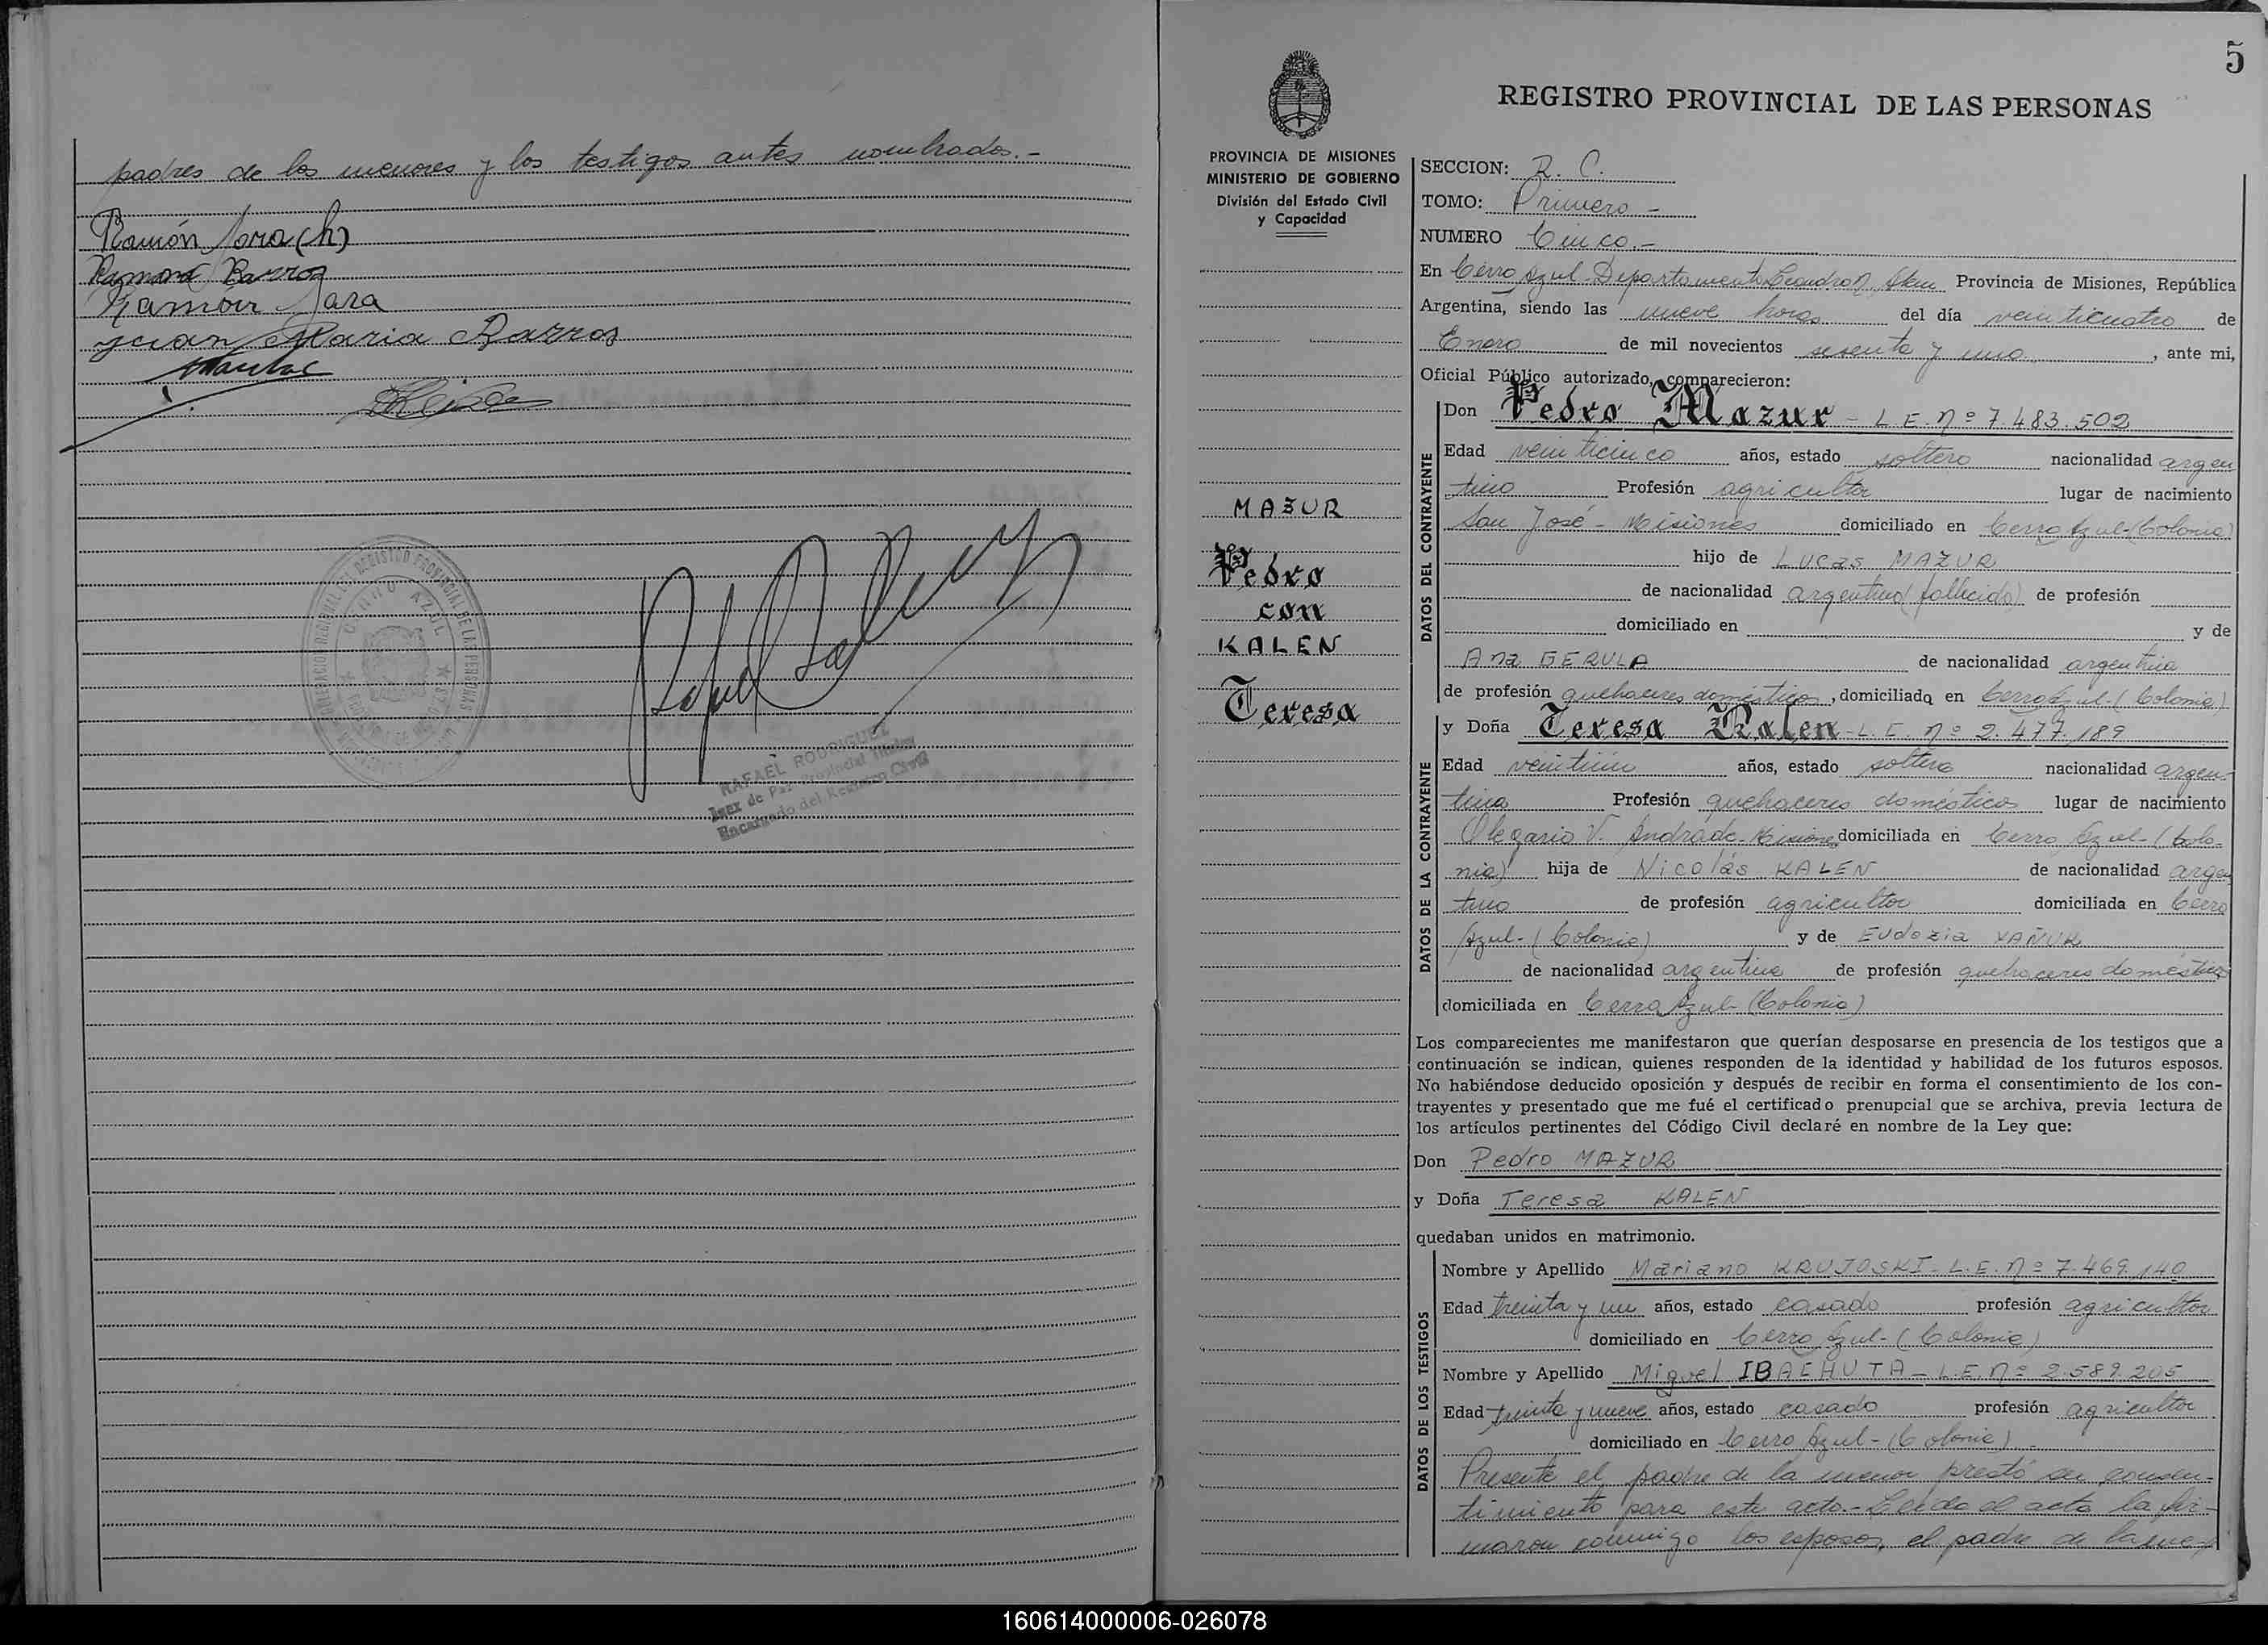 padres de los menores y los testigos antes nombrados.-
Ramón Jara (h)
Ramona Barros
Ramón Jara
Juan Maria Barros
CERRO AZUL
RAFAEL RODRIGUEZ
Juez de Paz Provincial Titular
Encargado del Registro Civil
5
REGISTRO PROVINCIAL DE LAS PERSONAS
PROVINCIA DE MISIONES
MINISTERIO DE GOBIERNO
División del Estado Civil
y Capacidad
MAZUR
Pedro
con
KALEN
Teresa
SECCION: R. C.
TOMO: Primero -
NUMERO Cinco.-
En Cerro Azul Departamento Leandro N. Alem Provincia de Misiones, República
Argentina, siendo las nueve horas del día veinticuatro de
Enero de mil novecientos sesenta y uno, ante mi,
Oficial Público autorizado, comparecieron:
DATOS DEL CONTRAYENTE
Don Pedro Mazur - L.E. Nº 7.483.502
Edad veinticinco años, estado soltero nacionalidad argen
tino Profesión agricultor lugar de nacimiento
San José - Misiones domiciliado en Cerro Azul-(Colonia)
hijo de Lucas MAZUR
de nacionalidad argentino (fallecido) de profesión
domiciliado en y de
Ana GERULA de nacionalidad argentina
de profesión quehaceres domésticos, domiciliada en Cerro Azul-(Colonia)
DATOS DE LA CONTRAYENTE
y Doña Teresa Kalen - L.C. Nº 2.477.189
Edad veintiún años, estado soltera nacionalidad argen-
tina Profesión quehaceres domésticos lugar de nacimiento
Olegario V. Andrade-Misiones domiciliada en Cerro Azul-(Colo-
nia) hija de Nicolás KALEN de nacionalidad argen
tino de profesión agricultor domiciliada en Cerro
Azul-(Colonia) y de Eudozia
de nacionalidad argentina de profesión quehaceres domésticos
domiciliada en Cerro Azul-(Colonia)
Los comparecientes me manifestaron que querían desposarse en presencia de los testigos que a
continuación se indican, quienes responden de la identidad y habilidad de los futuros esposos.
No habiéndose deducido oposición y después de recibir en forma el consentimiento de los con-
trayentes y presentado que me fué el certificado prenupcial que se archiva, previa lectura de
los artículos pertinentes del Código Civil declaré en nombre de la Ley que:
Don Pedro MAZUR
y Doña Teresa KALEN
quedaban unidos en matrimonio.
DATOS DE LOS TESTIGOS
Nombre y Apellido Mariano KRUJOSKI - L.E. Nº 7.469.140
Edad treinta y un años, estado casado profesión agricultor
domiciliado en Cerro Azul-(Colonia)
Nombre y Apellido Miguel IBAEHUTA - L.E. Nº 2.589.205
Edad treinta y nueve años, estado casado profesión agricultor
domiciliado en Cerro Azul-(Colonia)
Presente el padre de la menor prestó su consen-
timiento para este acto.- Leída el acta la fir-
maron conmigo los esposos, el padre de la me-
160614000006-026078